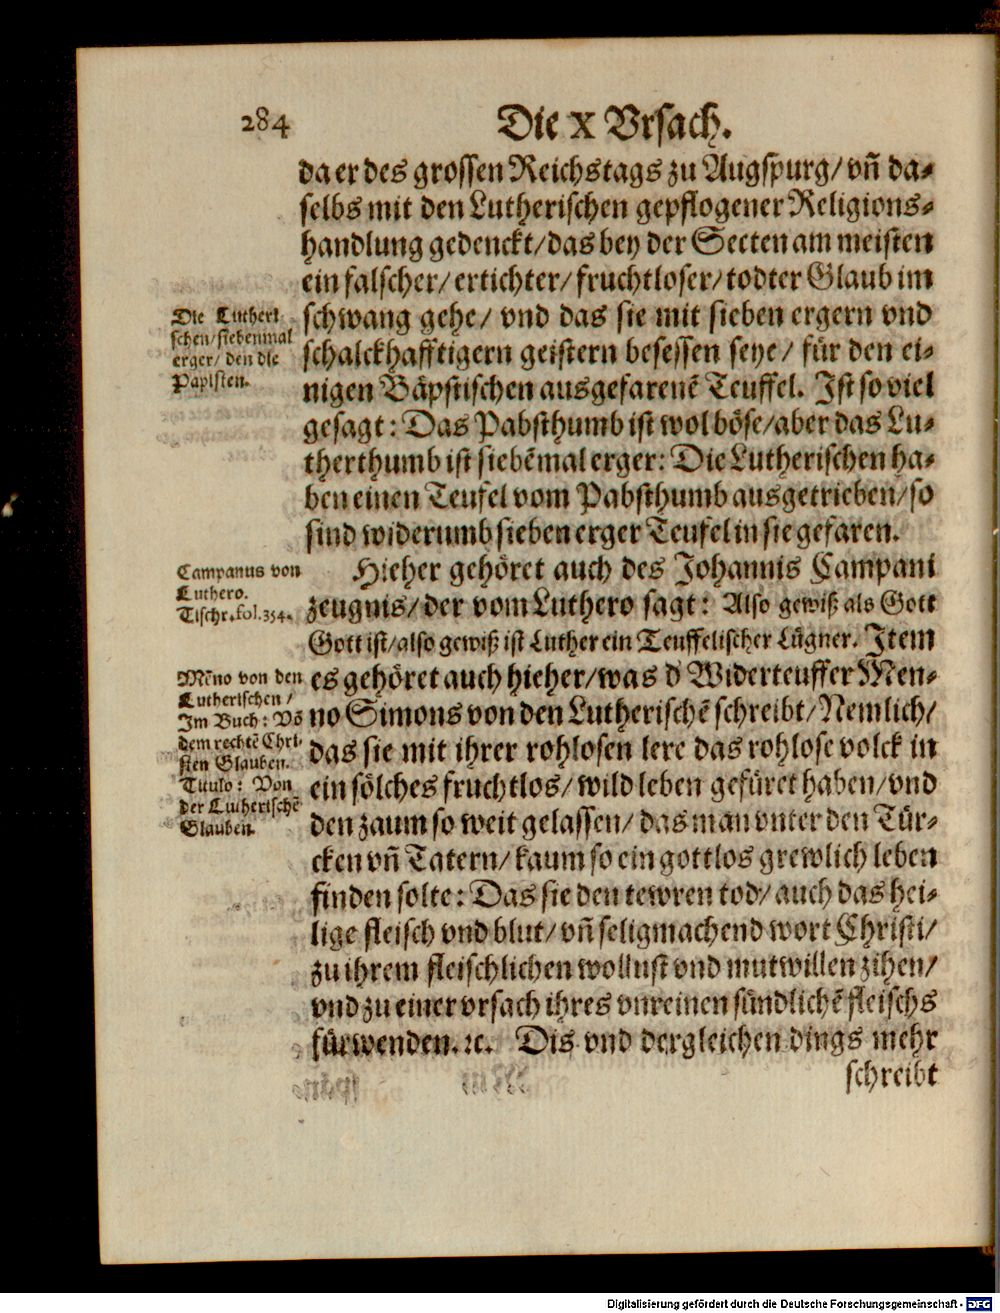 284
Die X Vrsach.
da er des grossen Reichstags zu Augspurg/ vñ da⸗
selbs mit den Lutherischen gepflogener Religions⸗
handlung gedenckt/ das bey der Secten am meisten
ein falscher/ ertichter/ fruchtloser/ todter Glaub im
schwang gehe/ vnd das sie mit sieben ergern vnd
schalckhafftigern geistern besessen seye/ für den ei⸗
nigen Bäpstischen ausgefarenē Teuffel. Ist so viel
gesagt: Das Pabsthumb ist wol böse/ aber das Lu⸗
therthumb ist siebēmal erger: Die Lutherischen ha⸗
ben einen Teufel vom Pabsthumb ausgetrieben/ so
sind widerumb sieben erger Teufel in sie gefaren.
Die Lutheri
schen/ siebenmal
erger/ den die
Papisten.
Hieher gehöret auch des Johannis Campani
zeugnis/ der vom Luthero sagt: Also gewiß als Gott
Gott ist/ also gewiß ist Luther ein Teuffelischer Lügner. Item
es gehöret auch hieher/ was d' Widerteuffer Men⸗
no Simons von den Lutherischē schreibt/ Nemlich/
das sie mit ihrer rohlosen lere das rohlose volck in
ein sölches fruchtlos/ wild leben gefüret haben/ vnd
den zaum so weit gelassen/ das man vnter den Tür⸗
cken vñ Tatern/ kaum so ein gottlos grewlich leben
finden solte: Das sie den tewren tod/ auch das hei⸗
lige fleisch vnd blut/ vñ seligmachend wort Christi/
zu ihrem fleischlichen wollust vnd mutwillen zihen/
vnd zu einer vrsach ihres vnreinen sündlichē fleischs
fürwenden. ꝛc. Dis vnd dergleichen dings mehr
schreibt
Campanus von
Luthero.
Tischr. fol. 354.
Mēno von den
Lutherischen/
Im Buch: Vō
dem rechtē Chri⸗
sten Glauben.
Titulo: Von
der Lutherischē
Glauben.
Digitalisierung gefördert durch die Deutsche Forschungsgemeinschaft - DFG